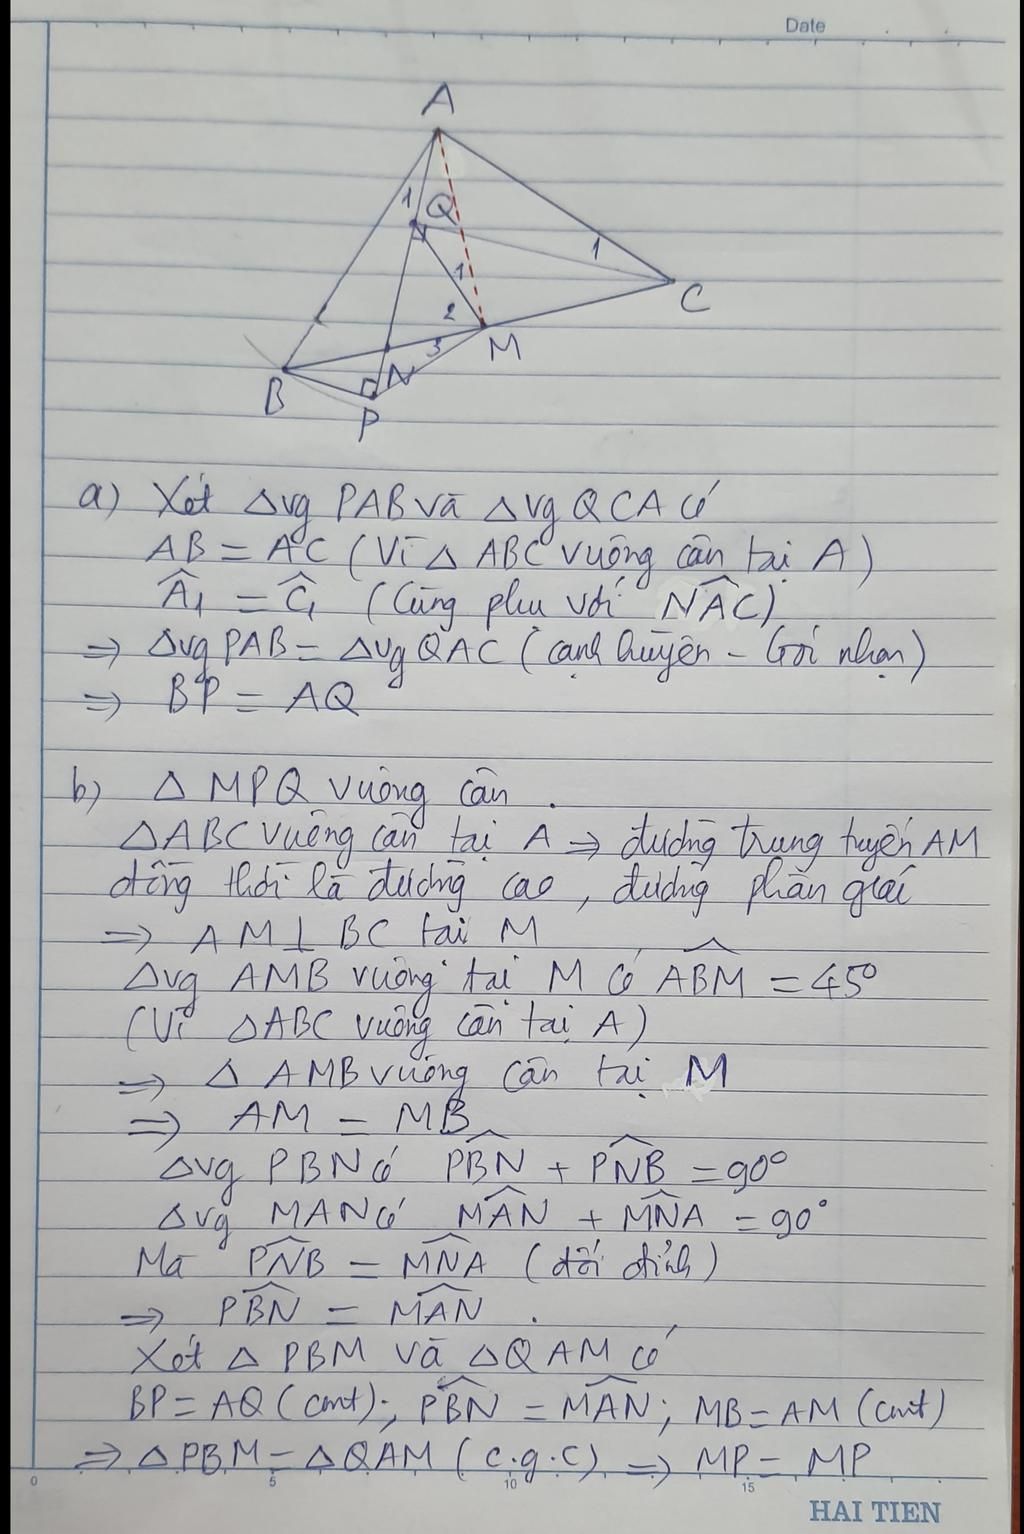 Date
A
1
Q
1
1
C
2
M
3
B
N
P
a) Xét ΔVg PAB và ΔVg QCA có
AB = AC (Vì Δ ABC vuông cân tại A)
Â₁ = Ĉ₁ (Cùng phụ với NÂC)
=> ΔVg PAB = ΔVg QAC (cạnh huyền - Gói nhọn)
=> BP = AQ
b) Δ MPQ vuông cân .
ΔABC vuông cân tại A => đường trung tuyến AM
đồng thời là đường cao, đường phân giái
=> AM ⊥ BC tại M
ΔVg AMB vuông tại M có ABM̂ = 45°
(Vì ΔABC vuông cân tại A)
=> Δ AMB vuông cân tại M
=> AM = MB
ΔVg PBN có PB̂N + PN̂B = 90°
ΔVg MAN có MÂN + MN̂A = 90°
Mà PN̂B = MN̂A (đối đỉnh)
=> PB̂N = MÂN .
Xét Δ PBM và ΔQAM có
BP = AQ (cmt); PB̂N = MÂN; MB = AM (cmt)
=> ΔPBM = ΔQAM (c.g.c) => MP = MP
0 5 10 15
HAI TIEN